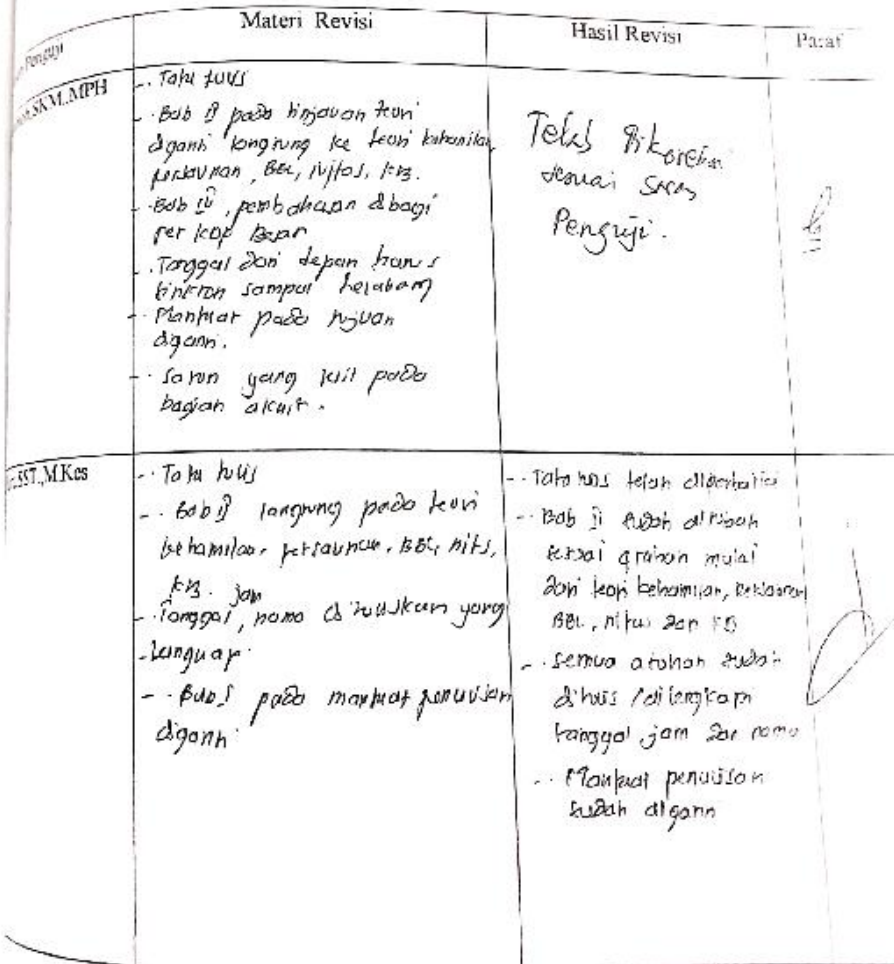 Materi Revisi
Hasil Revisi
Paraf
Penguji
SKM.,MPH
- Tata tulis
- Bab II pada tinjauan teori
diganti langsung ke teori kehamilan,
persalinan, BBL, nifas, KB.
- Bab IV, pembahasan dibagi
per
- Tanggal dari depan harus
sinkron sampai
- Manfaat pada tujuan
diganti.
- Saran yang pada
bagian
Telah dikoreksi
sesuai saran
Penguji.
SST.,M.Kes
- Tata tulis
- Bab II langsung pada teori
kehamilan, persalinan, BBL, nifas,
KB. jam
- Tanggal, nama dituliskan yang
lengkap.
- Bab I pada manfaat penulisan
diganti
- Tata tulis telah diperbaiki
- Bab II sudah dirubah
sesuai arahan mulai
dari teori kehamilan, persalinan
BBL, nifas dan KB
- Semua asuhan sudah
ditulis / dilengkapi
tanggal, jam dan nama
- Manfaat penulisan
sudah diganti